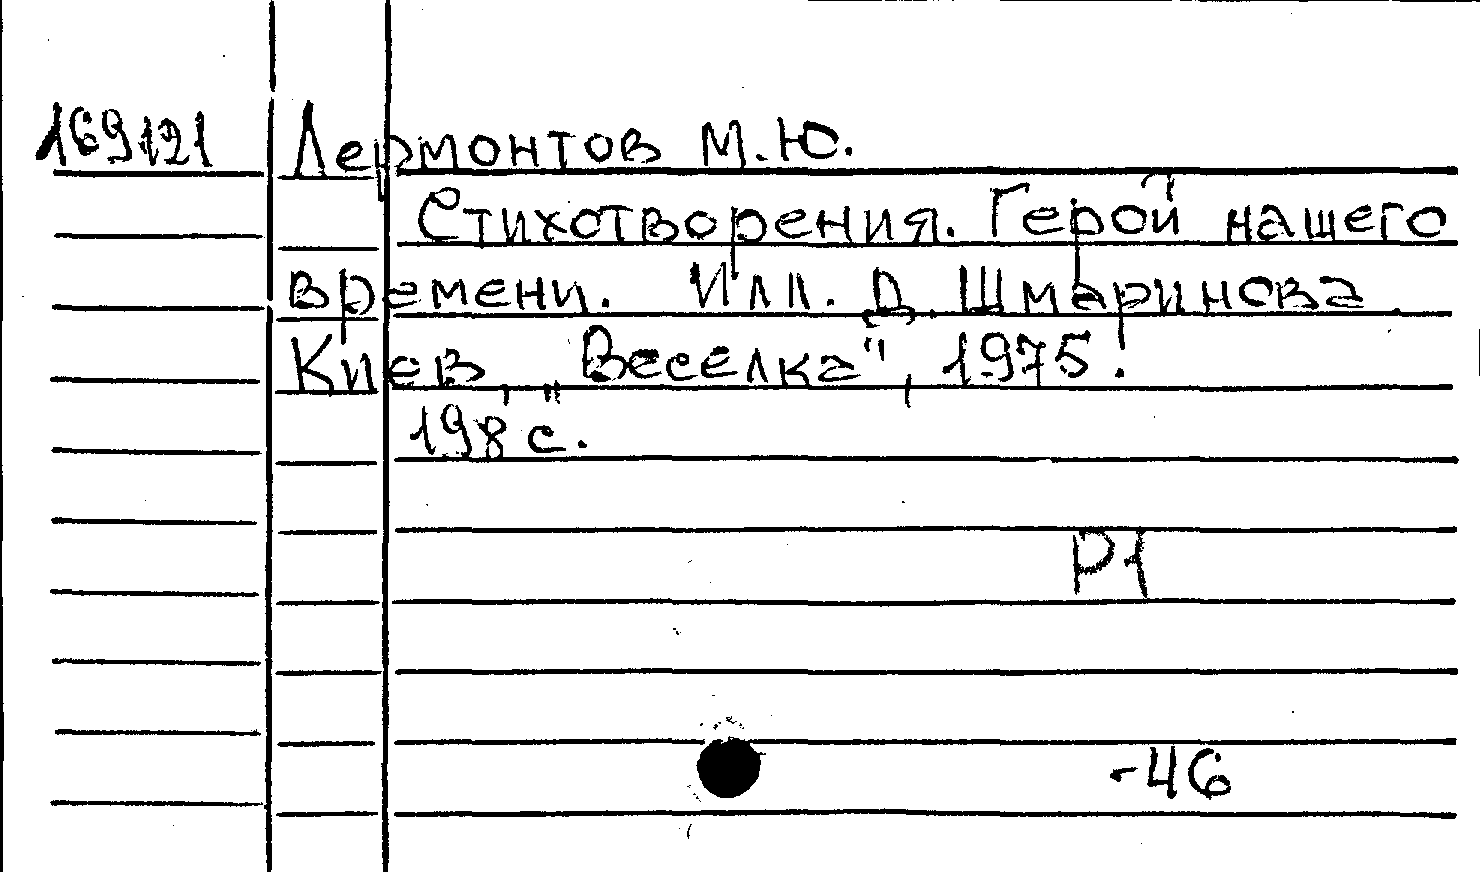 169121 Лермонтов М.Ю.
Стихотворения. Герой нашего
времени. Илл. Д. Шмаринова.
Киев, „Веселка", 1975.
198 с.
Р1
-46